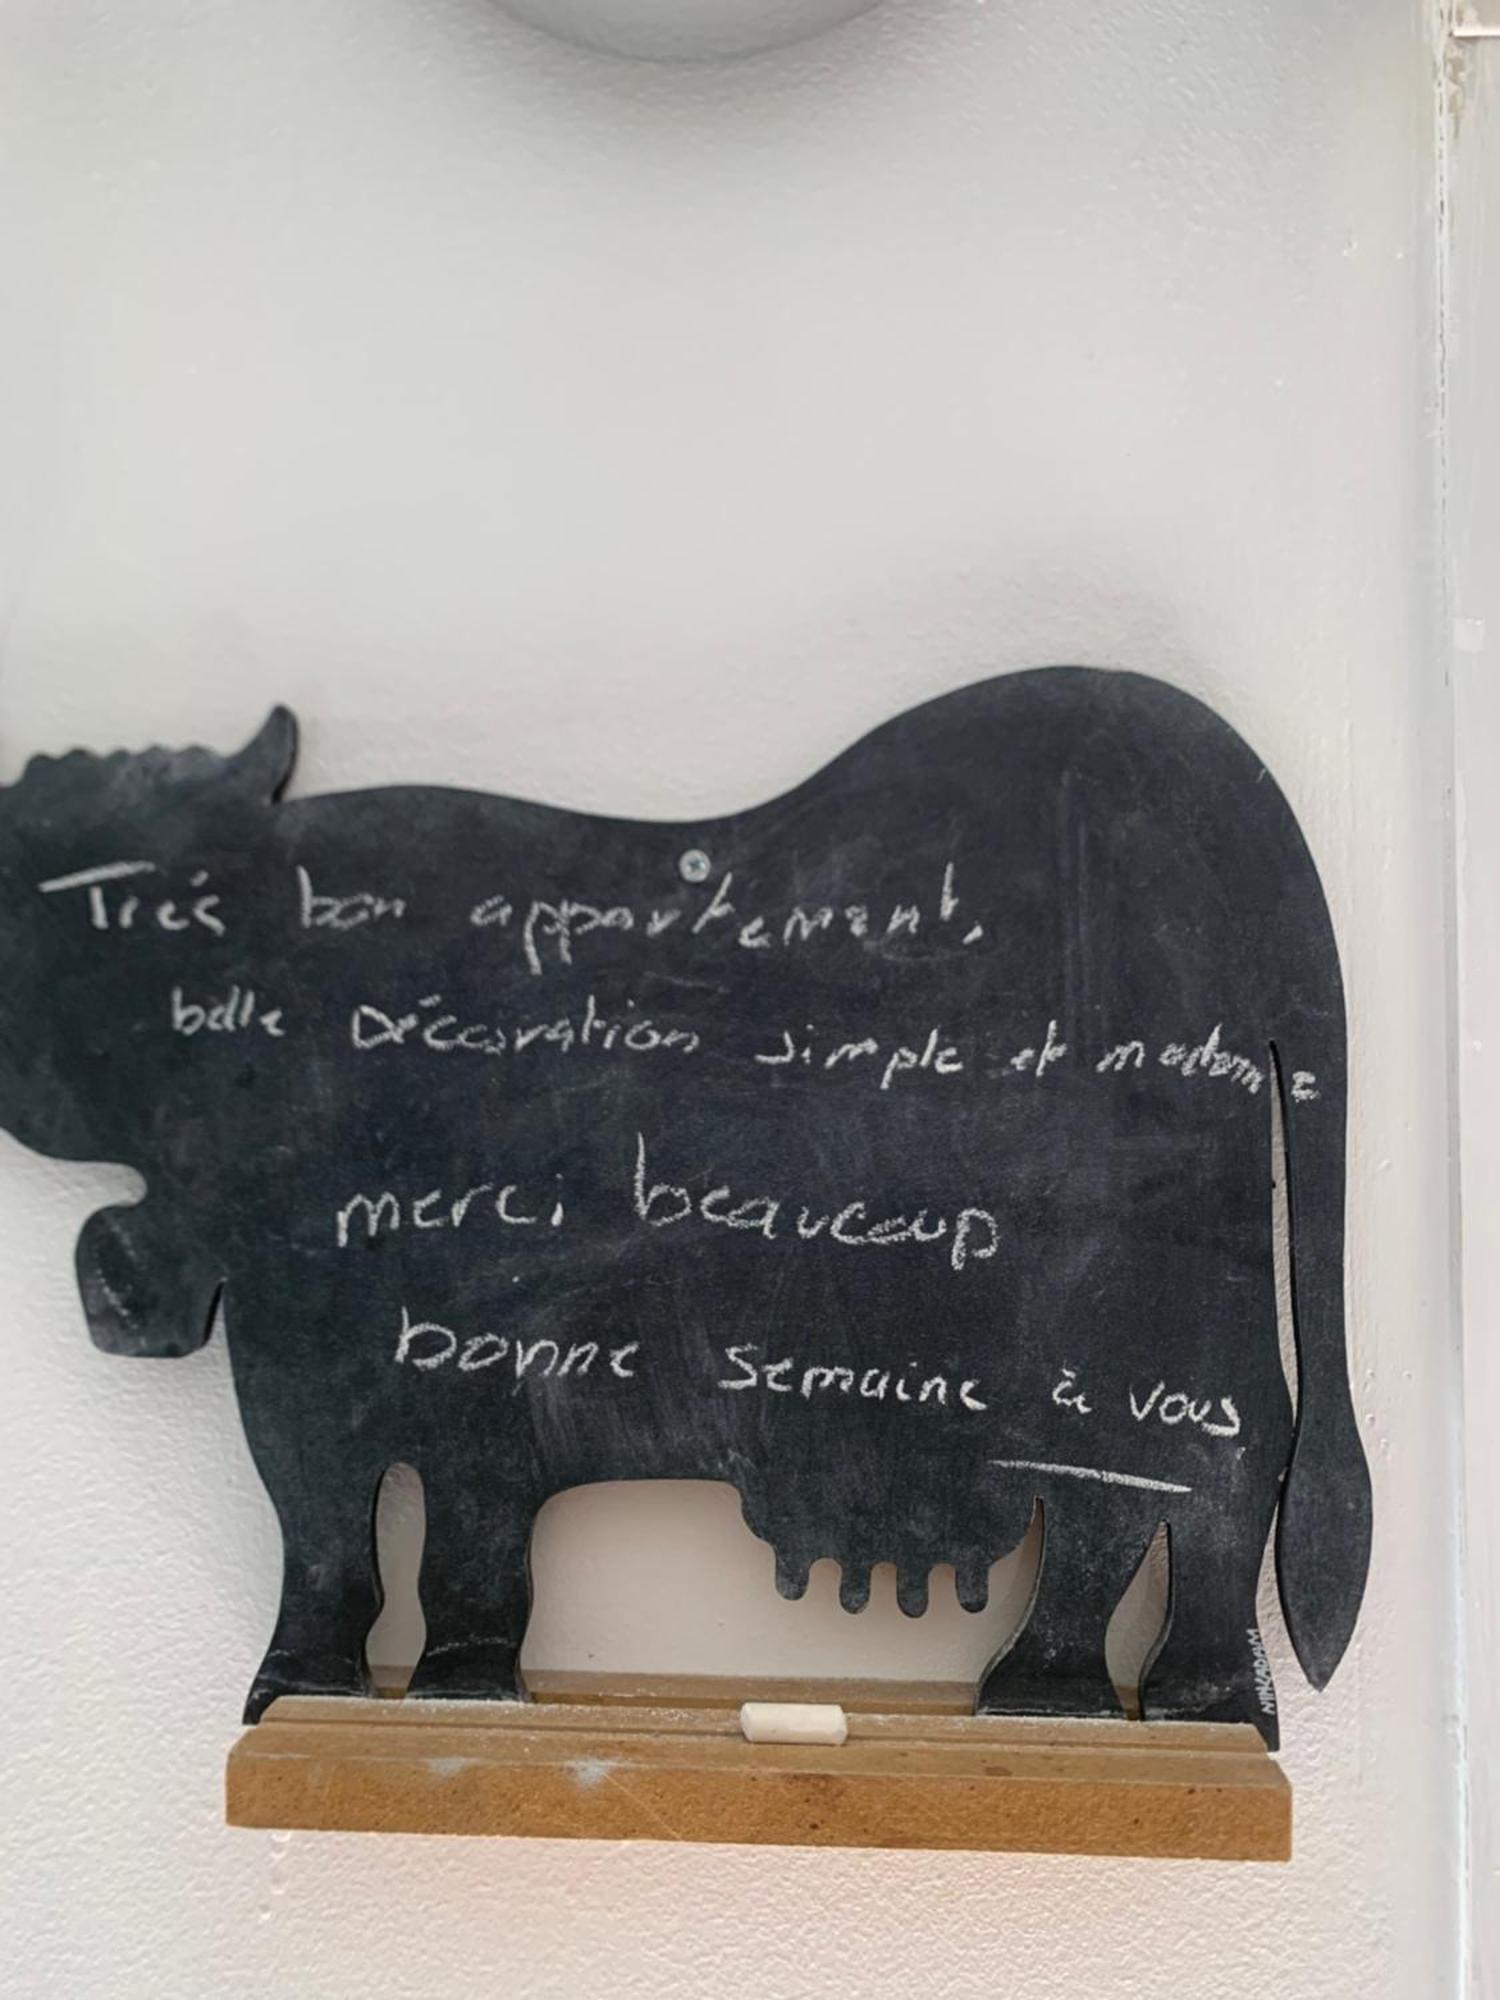 Trés bon appartement,
belle Décoration simple et moderne
merci beaucoup
bonne semaine à vous